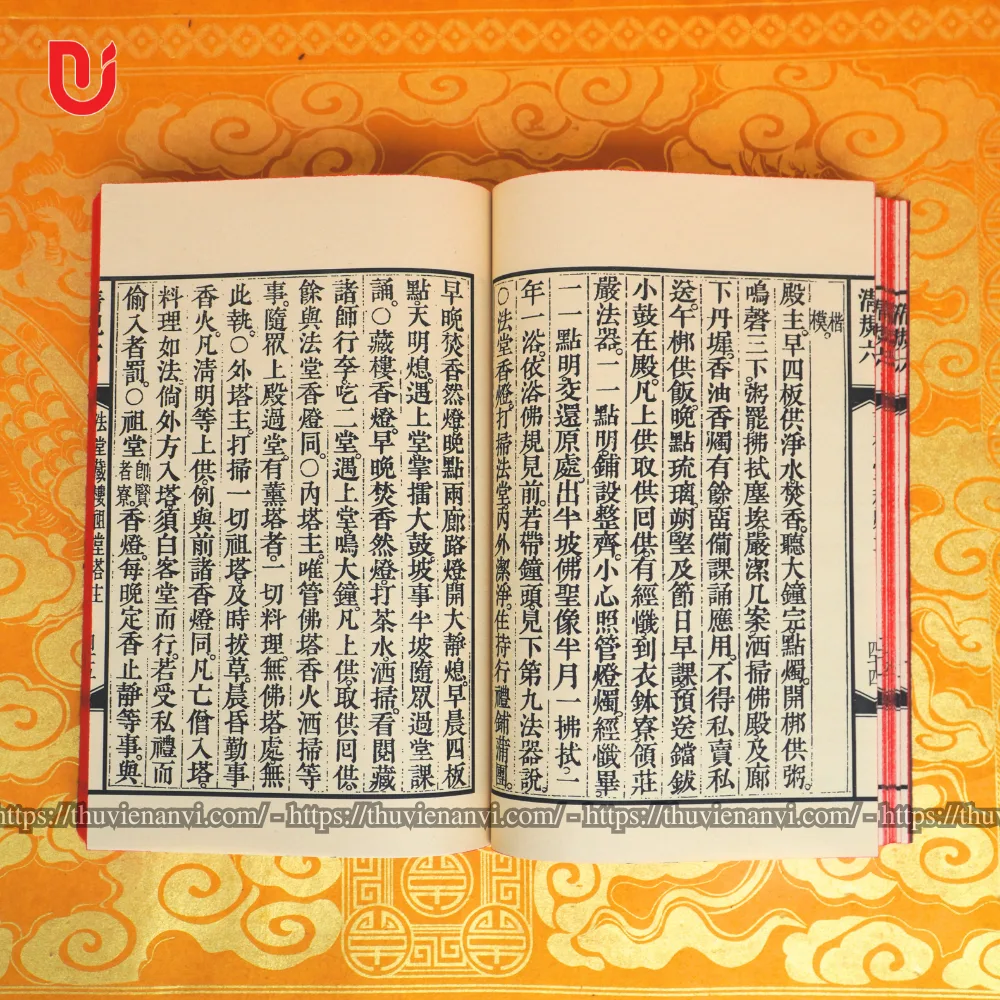 清規六
楷模。
殿主。早四板供淨水焚香。聽大鐘完點燭。開梆供粥。
鳴磬三下。粥罷拂拭塵埃。嚴潔几案。洒掃佛殿及廊
下丹墀。香油香燭有餘畱備課誦應用。不得私賣私
送。午梆供飯。晚點琉璃。朔朢及節日早課預送鐺鈸
小鼓在殿。凡上供取供囘供。有經懺到衣鉢寮領莊
嚴法器。一一點明鋪設整齊。小心照管燈燭。經懺畢
一一點明交還原處。出半坡佛聖像半月一拂拭。一
年一浴。依浴佛規見前。若帶鐘頭見下第九法器說。
〇法堂香燈。打掃法堂內外潔淨。住持行禮鋪蒲團。
早晚焚香然燈。晚點兩廊路燈。開大靜熄。早晨四板
點。天明熄。遇上堂掌擂大鼓。坡事半坡。隨眾過堂課
誦。〇藏樓香燈。早晚焚香然燈。打茶水。洒掃。看閱藏
諸師行李。吃二堂。遇上堂鳴大鐘。凡上供。取供囘供。
餘與法堂香燈同。〇內塔主。唯管佛塔香火洒掃等
事。隨眾上殿過堂。有薰塔者。一切料理。無佛塔處無
此執。〇外塔主。打掃一切祖塔。及時拔草。晨昏勤事
香火。凡清明等上供。例與前諸香燈同。凡亡僧入塔。
料理如法。倘外方入塔。須白客堂而行。若受私禮而
偷入者罰。〇祖堂卽賢者寮。香燈。每晚定香止靜等事。與
法堂藏樓祖堂塔主
https://thuvienanvi.com/ - https://thuvienanvi.com/ - https://thuvienanvi.com/ - https://thuvienanvi.com/